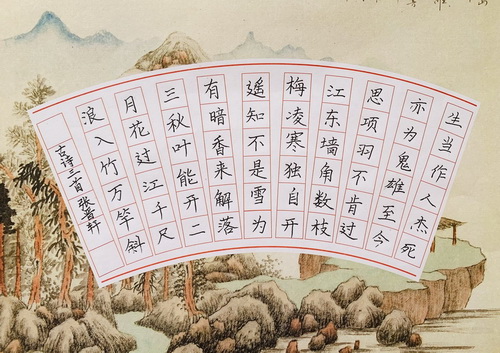 生当作人杰死
亦为鬼雄至今
思项羽不肯过
江东墙角数枝
梅凌寒独自开
遥知不是雪为
有暗香来解落
三秋叶能开二
月花过江千尺
浪入竹万竿斜
古诗三首